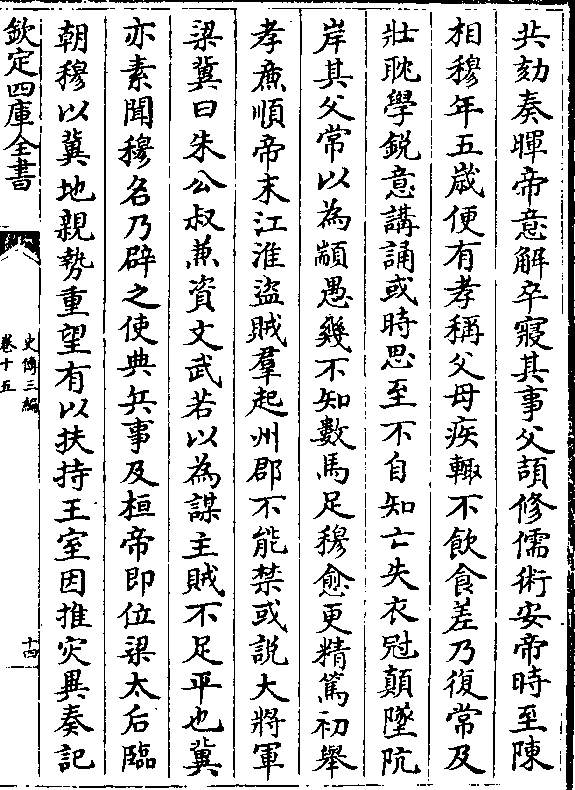 共劾奏暉帝意解卒寢其事父頡修儒術安帝時至陳
相穆年五歲便有孝稱父母疾輒不飲食差乃復常及
壯耽學銳意講誦或時思至不自知亡失衣冠顛墜阬
岸其父常以為顓愚幾不知數馬足穆愈更精篤初舉
孝亷順帝末江淮盜賊羣起州郡不能禁或說大將軍
梁冀曰朱公叔兼資文武若以為謀主賊不足平也冀
亦素聞穆名乃辟之使典兵事及桓帝即位梁太后臨
朝穆以冀地親勢重望有以扶持王室因推災異奏記
欽定四庫全書
史傳三編
卷十五
十四